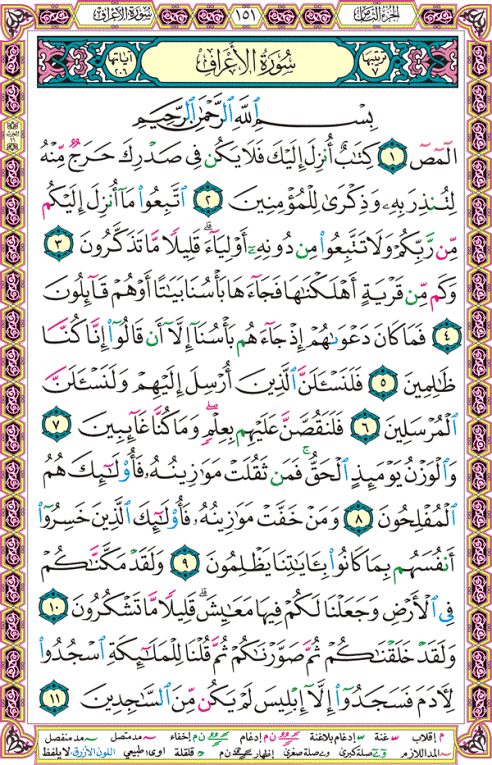 سُورَةُ الأَعْرَافِ ١٥١ الجزء الثامن
ترتيبها ٧ سُورَةُ الأَعْرَافِ آياتها ٢٠٦
بِسْمِ اللَّهِ الرَّحْمَٰنِ الرَّحِيمِ
الٓمٓصٓ ١ كِتَٰبٌ أُنزِلَ إِلَيْكَ فَلَا يَكُن فِى صَدْرِكَ حَرَجٌ مِّنْهُ
لِتُنذِرَ بِهِۦ وَذِكْرَىٰ لِلْمُؤْمِنِينَ ٢ ٱتَّبِعُوا۟ مَآ أُنزِلَ إِلَيْكُم
مِّن رَّبِّكُمْ وَلَا تَتَّبِعُوا۟ مِن دُونِهِۦٓ أَوْلِيَآءَ ۗ قَلِيلًا مَّا تَذَكَّرُونَ ٣
وَكَم مِّن قَرْيَةٍ أَهْلَكْنَٰهَا فَجَآءَهَا بَأْسُنَا بَيَٰتًا أَوْ هُمْ قَآئِلُونَ
٤ فَمَا كَانَ دَعْوَىٰهُمْ إِذْ جَآءَهُم بَأْسُنَآ إِلَّآ أَن قَالُوٓا۟ إِنَّا كُنَّا
ظَٰلِمِينَ ٥ فَلَنَسْـَٔلَنَّ ٱلَّذِينَ أُرْسِلَ إِلَيْهِمْ وَلَنَسْـَٔلَنَّ
ٱلْمُرْسَلِينَ ٦ فَلَنَقُصَّنَّ عَلَيْهِم بِعِلْمٍ ۖ وَمَا كُنَّا غَآئِبِينَ ٧
وَٱلْوَزْنُ يَوْمَئِذٍ ٱلْحَقُّ ۚ فَمَن ثَقُلَتْ مَوَٰزِينُهُۥ فَأُو۟لَٰٓئِكَ هُمُ
ٱلْمُفْلِحُونَ ٨ وَمَنْ خَفَّتْ مَوَٰزِينُهُۥ فَأُو۟لَٰٓئِكَ ٱلَّذِينَ خَسِرُوٓا۟
أَنفُسَهُم بِمَا كَانُوا۟ بِـَٔايَٰتِنَا يَظْلِمُونَ ٩ وَلَقَدْ مَكَّنَّٰكُمْ
فِى ٱلْأَرْضِ وَجَعَلْنَا لَكُمْ فِيهَا مَعَٰيِشَ ۗ قَلِيلًا مَّا تَشْكُرُونَ ١٠
وَلَقَدْ خَلَقْنَٰكُمْ ثُمَّ صَوَّرْنَٰكُمْ ثُمَّ قُلْنَا لِلْمَلَٰٓئِكَةِ ٱسْجُدُوا۟
لِـَٔادَمَ فَسَجَدُوٓا۟ إِلَّآ إِبْلِيسَ لَمْ يَكُن مِّنَ ٱلسَّٰجِدِينَ ١١
م إقلاب غنة إدغام بلاغنة ن م إدغام ن م إخفاء مد متصل مد منفصل
المد اللازم صلة كبرى صلة صغرى إظهار ن م قلقلة اوى طبيعي اللون الأزرق لا يلفظ